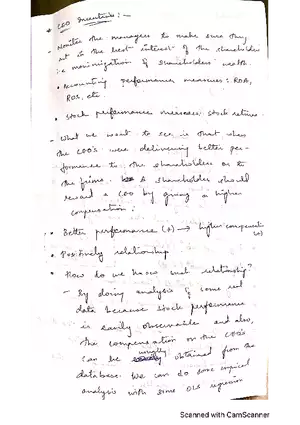 * CEO Incentives :-
- Monitor the managers to make sure they
act in the best interest of the shareholder
i.e maximization of shareholders wealth.
• Accounting performance measures: ROA,
ROS, etc.
• Stock performance measures: stock returns.
- What we want to see is that when
the CEO's were delivering better per-
formance to the shareholders or to
the firms. shareholder should
reward a CEO by giving a higher
compensation.
• Better performance (↑) → higher compensation
(↑)
• Positively relationship
• How do we know such relationship?
- By doing analysis & some real
data because stock performance
is easily observable and also,
the compensation on the CEO's
can be usually obtained from the
database. We can do some empirical
analysis with some OLS regression
Scanned with CamScanner